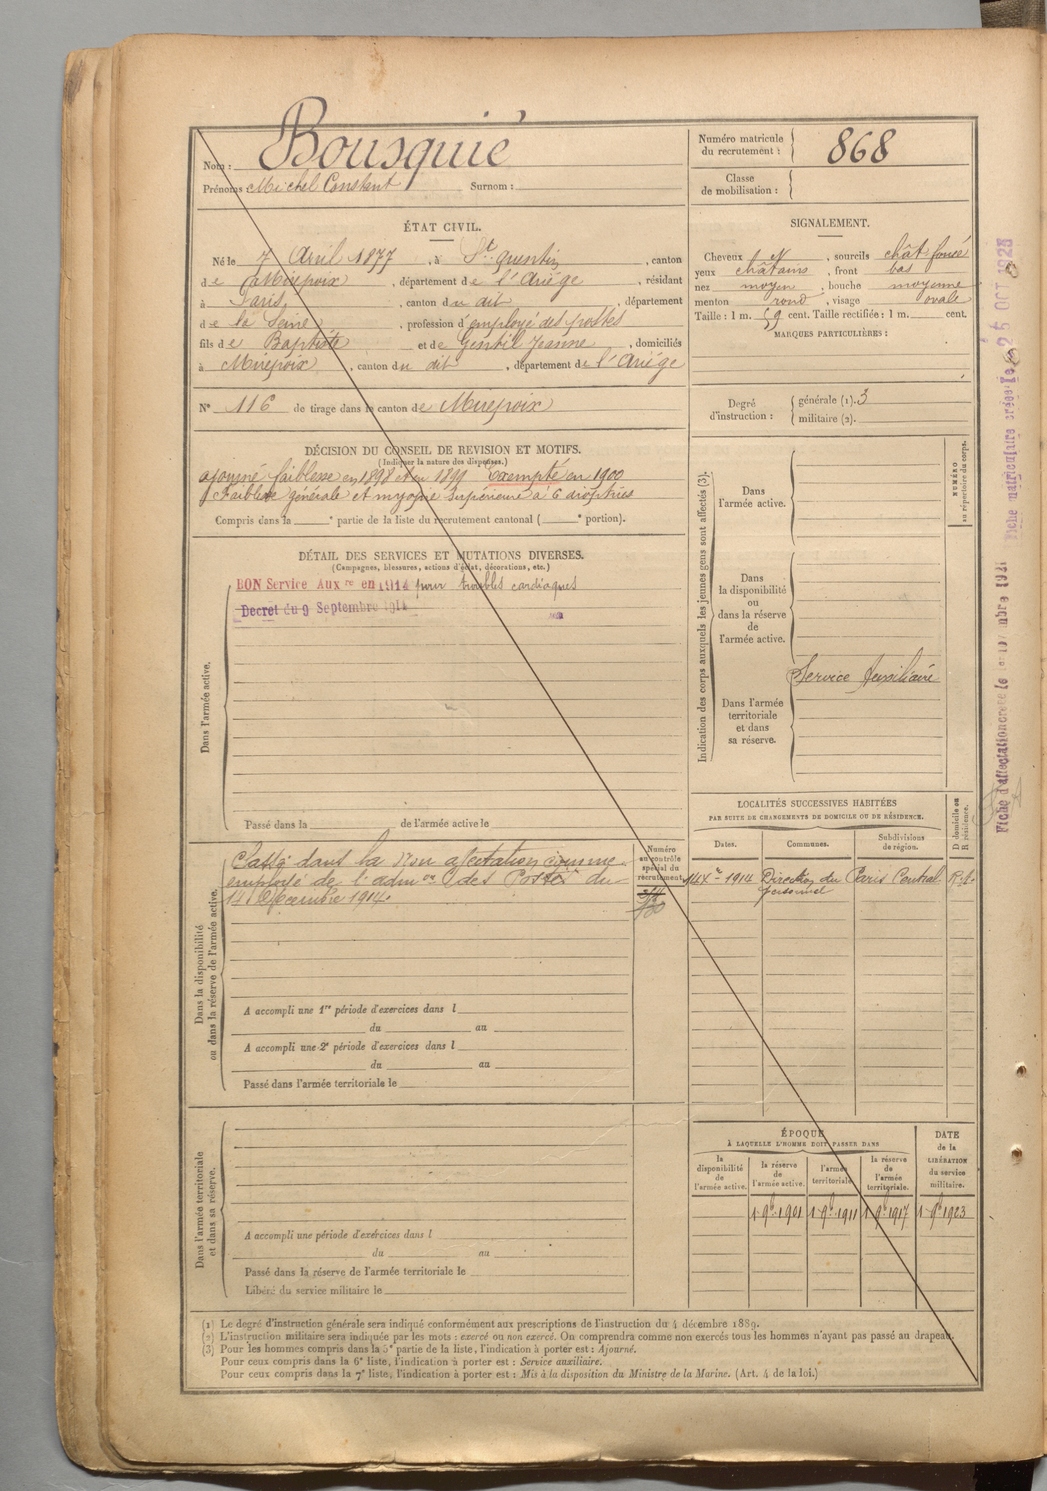 Nom : Bousquié
Prénoms Michel Constant Surnom :
Numéro matricule
du recrutement : 868
Classe
de mobilisation :
ÉTAT CIVIL.
Né le 7 Avril 1877, à St Quentin, canton
de Mirepoix, département de l'Ariége, résidant
à Paris, canton du dit, département
de la Seine, profession d'employé des postes
fils de Baptiste et de Gentil Jeanne, domiciliés
à Mirepoix, canton du dit, département de l'Ariége
SIGNALEMENT.
Cheveux et, sourcils chât. foncé
yeux châtains, front bas
nez moyen, bouche moyenne
menton rond, visage ovale
Taille : 1 m. 59 cent. Taille rectifiée : 1 m. cent.
MARQUES PARTICULIÈRES :
N° 116 de tirage dans le canton de Mirepoix
Degré
d'instruction :
générale (1). 3
militaire (2).
DÉCISION DU CONSEIL DE REVISION ET MOTIFS.
(Indiquer la nature des dispenses.)
ajourné faiblesse en 1898 et en 1899 Exempté en 1900
faiblesse générale et myopie supérieure à 6 dioptries
Compris dans la e partie de la liste du recrutement cantonal ( e portion).
DÉTAIL DES SERVICES ET MUTATIONS DIVERSES.
(Campagnes, blessures, actions d'éclat, décorations, etc.)
Dans l'armée active.
BON Service Aux re en 1914 pour troubles cardiaques
Décret du 9 Septembre 1914
Passé dans la de l'armée active le
Indication des corps auxquels les jeunes gens sont affectés (3).
NUMÉRO
au répertoire du corps.
Dans
l'armée active.
Dans
la disponibilité
ou
dans la réserve
de
l'armée active.
Service Auxiliaire
Dans l'armée
territoriale
et dans
sa réserve.
Dans la disponibilité
ou dans la réserve de l'armée active.
Classé dans la Non affectation comme
employé de l'admon des Postes du
Décembre 1914.
Numéro
au contrôle
spécial du
recrutement.
A accompli une 1re période d'exercices dans l
du au
A accompli une 2e période d'exercices dans l
du au
Passé dans l'armée territoriale le
LOCALITÉS SUCCESSIVES HABITÉES
PAR SUITE DE CHANGEMENTS DE DOMICILE OU DE RÉSIDENCE.
Dates.
Communes.
Subdivisions
de région.
D domicile ou
R résidence.
1914 Direction du Paris Central R.
personnel
Dans l'armée territoriale
et dans sa réserve.
A accompli une période d'exercices dans l
du au
Passé dans la réserve de l'armée territoriale le
Libéré du service militaire le
ÉPOQUE
À LAQUELLE L'HOMME DOIT PASSER DANS
la
disponibilité
de
l'armée active.
la réserve
de
l'armée active.
l'armée
territoriale.
la réserve
de
l'armée
territoriale.
DATE
de la
LIBÉRATION
du service
militaire.
1 9b 1901 1 9b 1911 1 9b 1917 1 9b 1923
(1) Le degré d'instruction générale sera indiqué conformément aux prescriptions de l'instruction du 4 décembre 1889.
(2) L'instruction militaire sera indiquée par les mots : exercé ou non exercé. On comprendra comme non exercés tous les hommes n'ayant pas passé au drapeau.
(3) Pour les hommes compris dans la 5e partie de la liste, l'indication à porter est : Ajourné.
Pour ceux compris dans la 6e liste, l'indication à porter est : Service auxiliaire.
Pour ceux compris dans la 7e liste, l'indication à porter est : Mis à la disposition du Ministre de la Marine. (Art. 4 de la loi.)
Fiche matriculaire créée le 26 OCT 1928
Fiche d'affectation